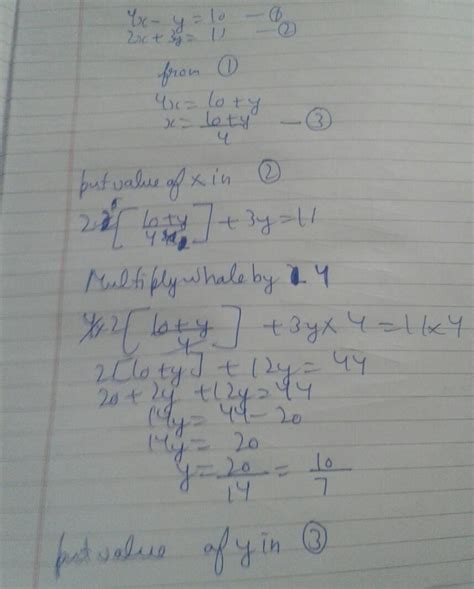 4x - y = 10 — ①
2x + 3y = 11 — ②
from ①
4x = 10 + y
x = 10 + y / 4 — ③
put value of x in ②
2 [ 10 + y / 4 ] + 3y = 11
Multiply whale by 4
4 x 2 [ 10 + y / 4 ] + 3y x 4 = 11 x 4
2 [10 + y] + 12y = 44
20 + 2y + 12y = 44
14y = 44 - 20
14y = 20
y = 20 / 14 = 10 / 7
put value of y in ③